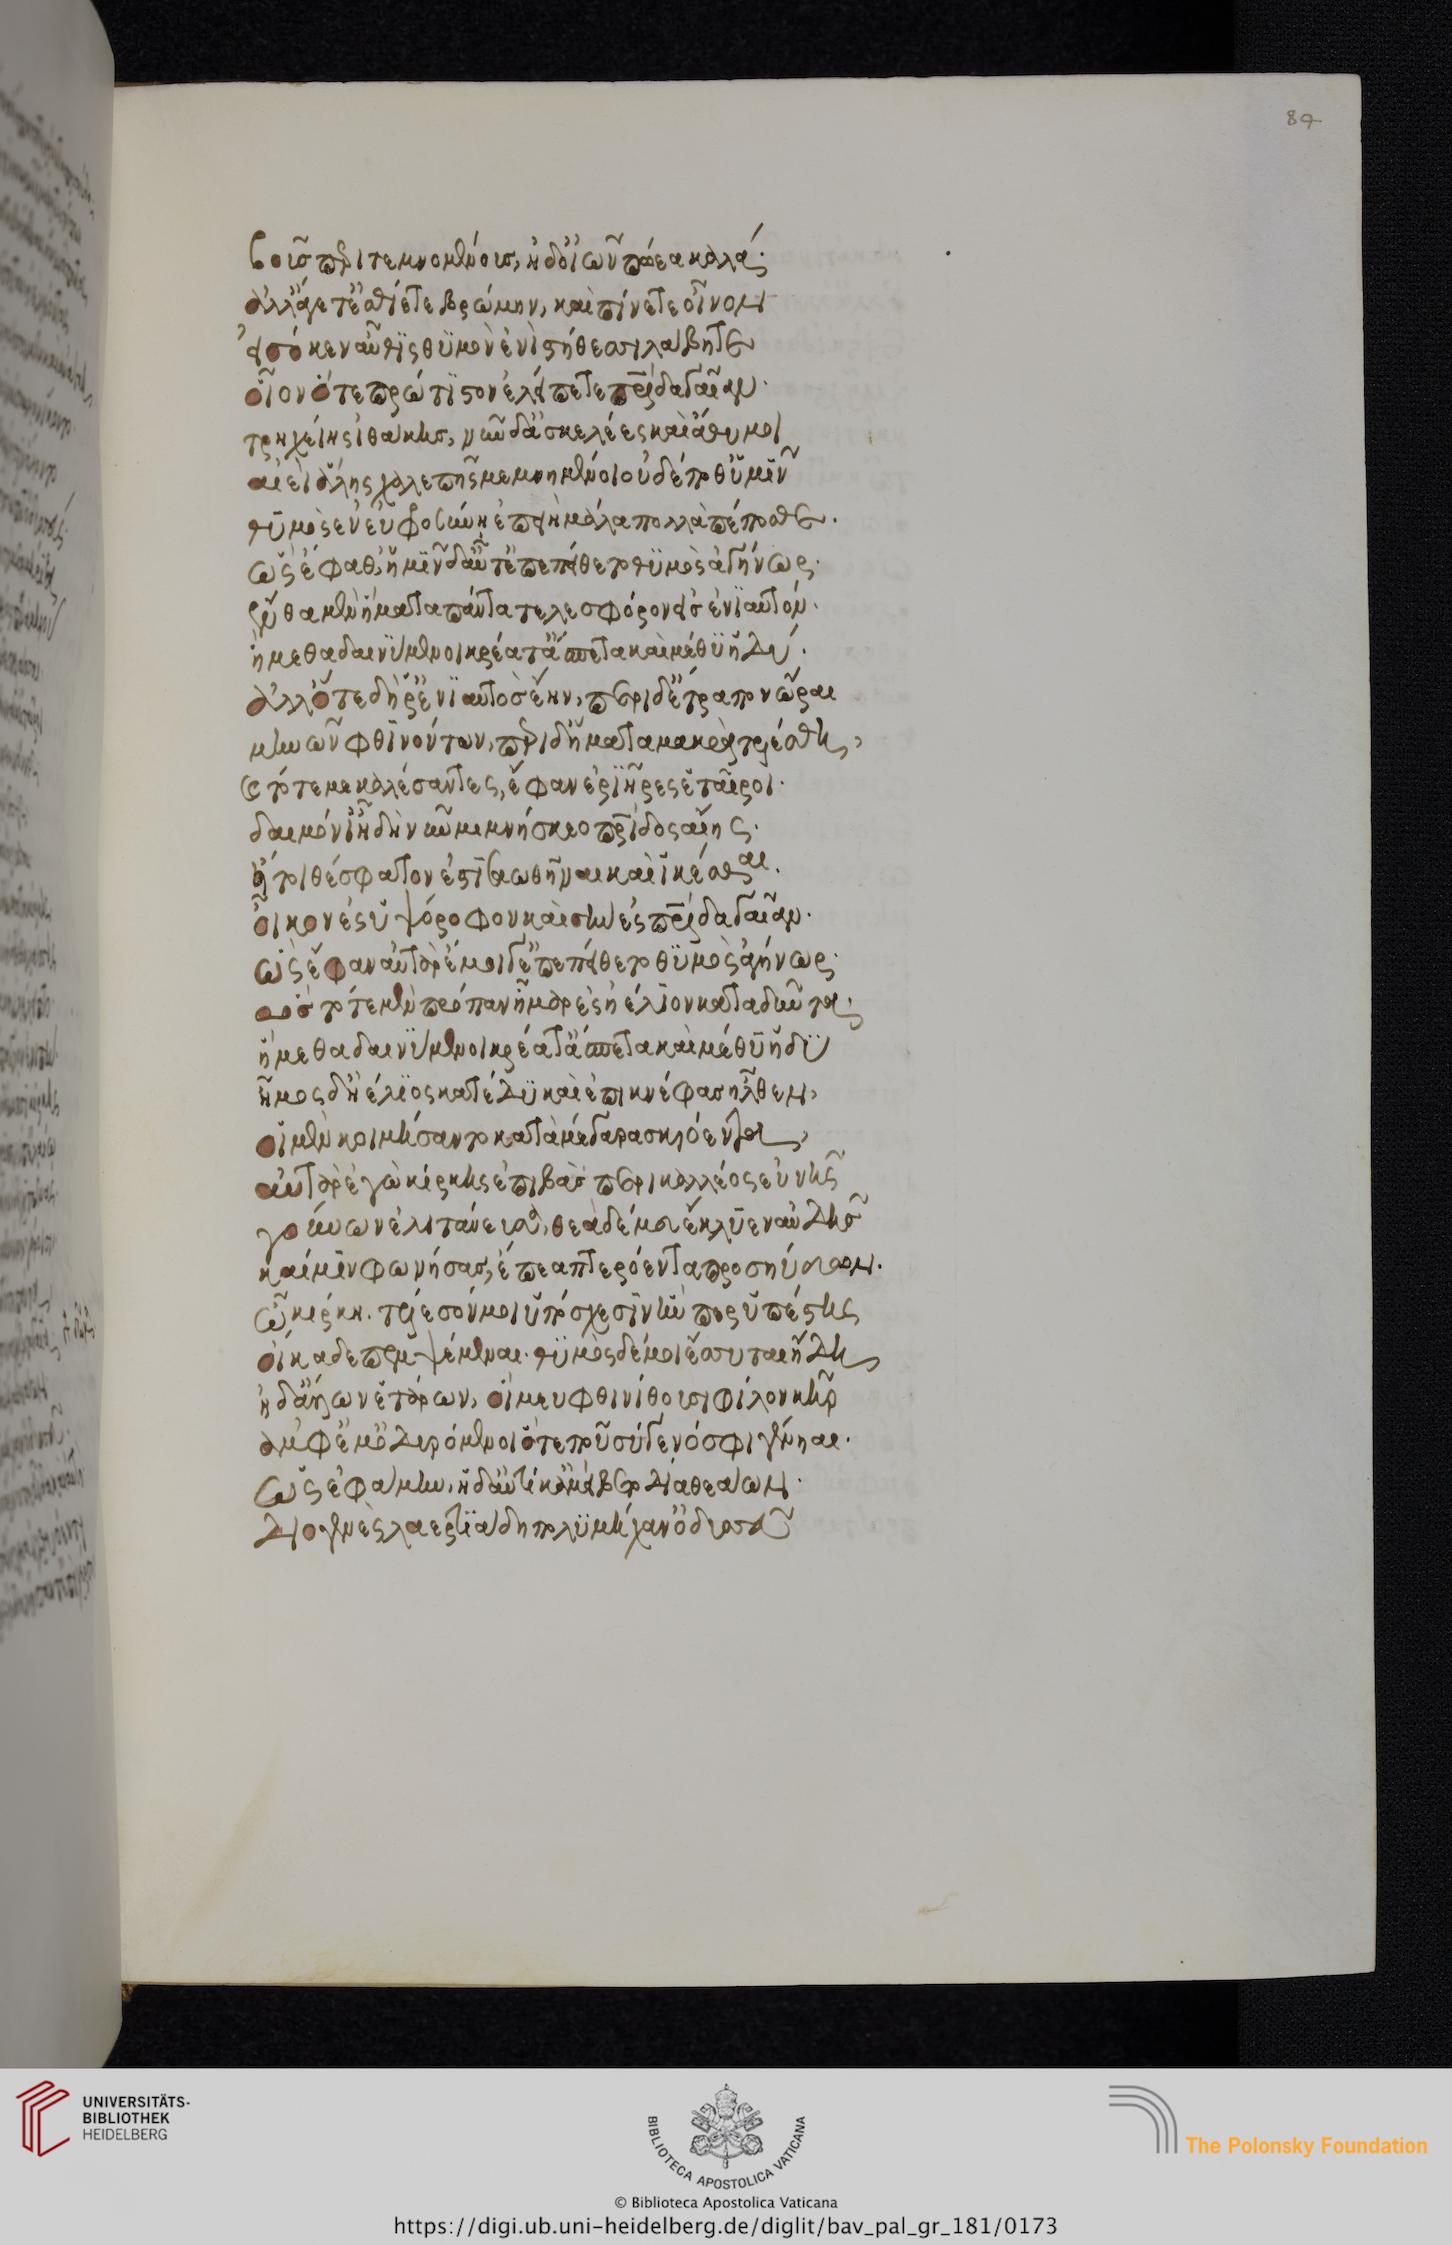 βοῦς περιτεμνομένους, ἠδ' οἰῶν πώεα καλά·
ἀλλ' ἄγετ' ἐσθίετε βρώμην, καὶ πίνετε οἶνον
εἰσόκεν αὖτϊς θϋμὸν ἐνὶ στήθεσσι λάβητε
οἷον ὅτε πρώτϊστον ἐλείπετε πρίδα γαῖαν·
τρηχείης ἰθάκης, νῦν δ' ἀσκελέες καὶ ἄθυμοι
αἰεὶ ἄλης χαλεπῆς μεμνημένοι οὐδέ ποθ' ὑμῖν
θῡμὸς ἐν εὐφροσύνη ἐπειὴ μάλα πολλὰ πέποσθε.
ὣς ἔφαθ', ἡμῖν δ' αὖτ' ἐπεπείθετο θϋμὸς ἀγήνωρ·
ἔνθα μὲν ἤματα πάντα τελεσφόρον εἰς ἐνϊαυτόν·
ἥμεθα δαινΰμενοι κρέατ' ἄσπετα καὶ μέθϋ ἡδύ·
ἀλλ' ὅτε δή ῥ' ἐνϊαυτὸς ἔην, περὶ δ' ἔτραπον ὧραι
μηνῶν φθῑνόντων, περὶ δ' ἤματα μακρὰ τελέσθη,
καὶ τότε με καλέσαντες, ἔφαν ἐρίηρες ἑταῖροι·
δαιμόνι' ἤδη νῦν μιμνήσκεο πρίδος αἴης·
εἴ τοι θέσφατον ἐστῑ σαωθῆναι καὶ ἱκέσθαι.
οἶκον ἐς ὑψόροφον καὶ σὴν ἐς πρίδα γαῖαν·
ὣς ἔφαν αὐτὰρ ἐμοί γ' ἐπεπείθετο θϋμὸς ἀγήνωρ·
ὣς τότε μὲν πρόπαν ἦμαρ ἐς ἠέλιον καταδῦντα·
ἥμεθα δαινΰμενοι κρέατ' ἄσπετα καὶ μέθϋ ἡδΰ
ἦμος δ' ἠέλϊος κατέδϋ καὶ ἐπὶ κνέφας ἦλθεν,
οἱ μὲν κοιμήσαντο κατὰ μέγαρα σκιόεντα,
αὐτὰρ ἐγὼ κίρκης ἐπιβὰς περικαλλέος εὐνῆς
γούνων ἐλιτάνευσα, θεὰ δέ μοι ἔκλϋεν αὐδῆς
καί μῑν φωνήσας, ἔπεα πτερόεντα προσηύδαον.
ὦ κίρκη. τέλεσόν μοι ὑπόσχεσῑν ἣν περ ὑπέστης
οἴκαδε πεμψέμεναι. θϋμὸς δέ μοι ἔσσυται ἤδη
ἠδ' ἄλλων ἑτάρων, οἵ μευ φθινύθουσι φίλον κῆρ
ἀμφ' ἔμ' ὀδυρόμενοι ὅτε που σύ γε νόσφι γένηαι.
ὣς ἐφάμην, ἡ δ' αὐτίκ' ἀμείβετο δῖα θεάων·
διογενὲς λαερτϊάδη πολϋμήχαν' ὀδυσσεῦ
84
UNIVERSITÄTS-
BIBLIOTHEK
HEIDELBERG
BIBLIOTECA APOSTOLICA VATICANA
The Polonsky Foundation
© Biblioteca Apostolica Vaticana
https://digi.ub.uni-heidelberg.de/diglit/bav_pal_gr_181/0173